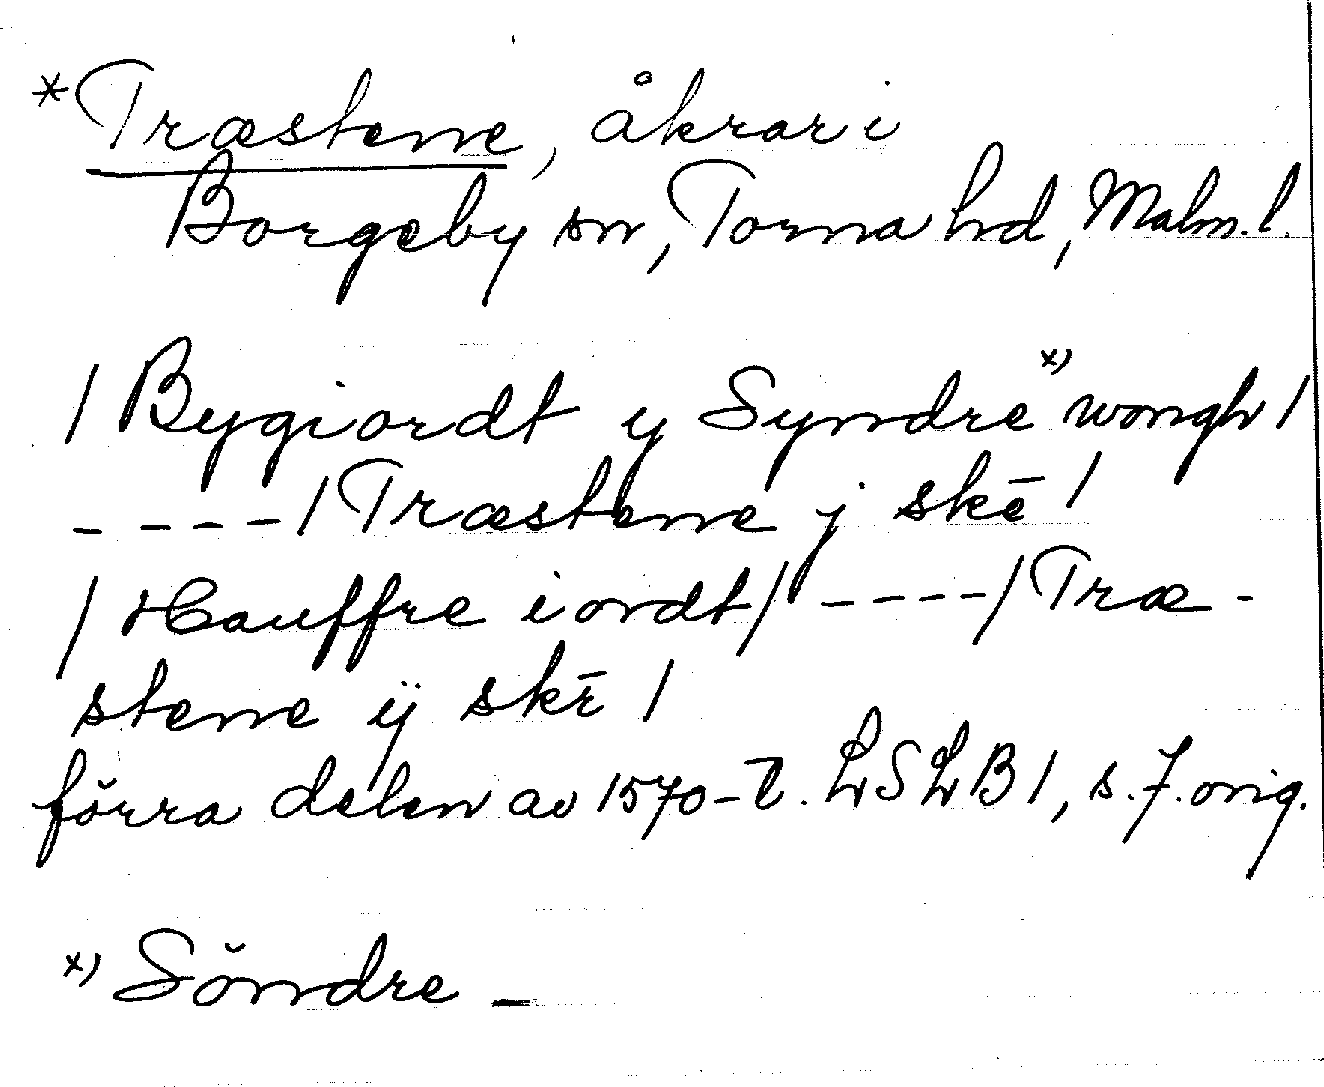 *Træstene, åkrar i
Borgeby sn, Torna hd, Malm. l.
/ Bygiordt y Syndre x) wongh /
- - - - / Træstene j skē /
/ Hauffre iordt / - - - - / Træ-
stene ÿ skē /
förra delen av 1570-t. LSLB 1, s. 7. orig.
x) Söndre -